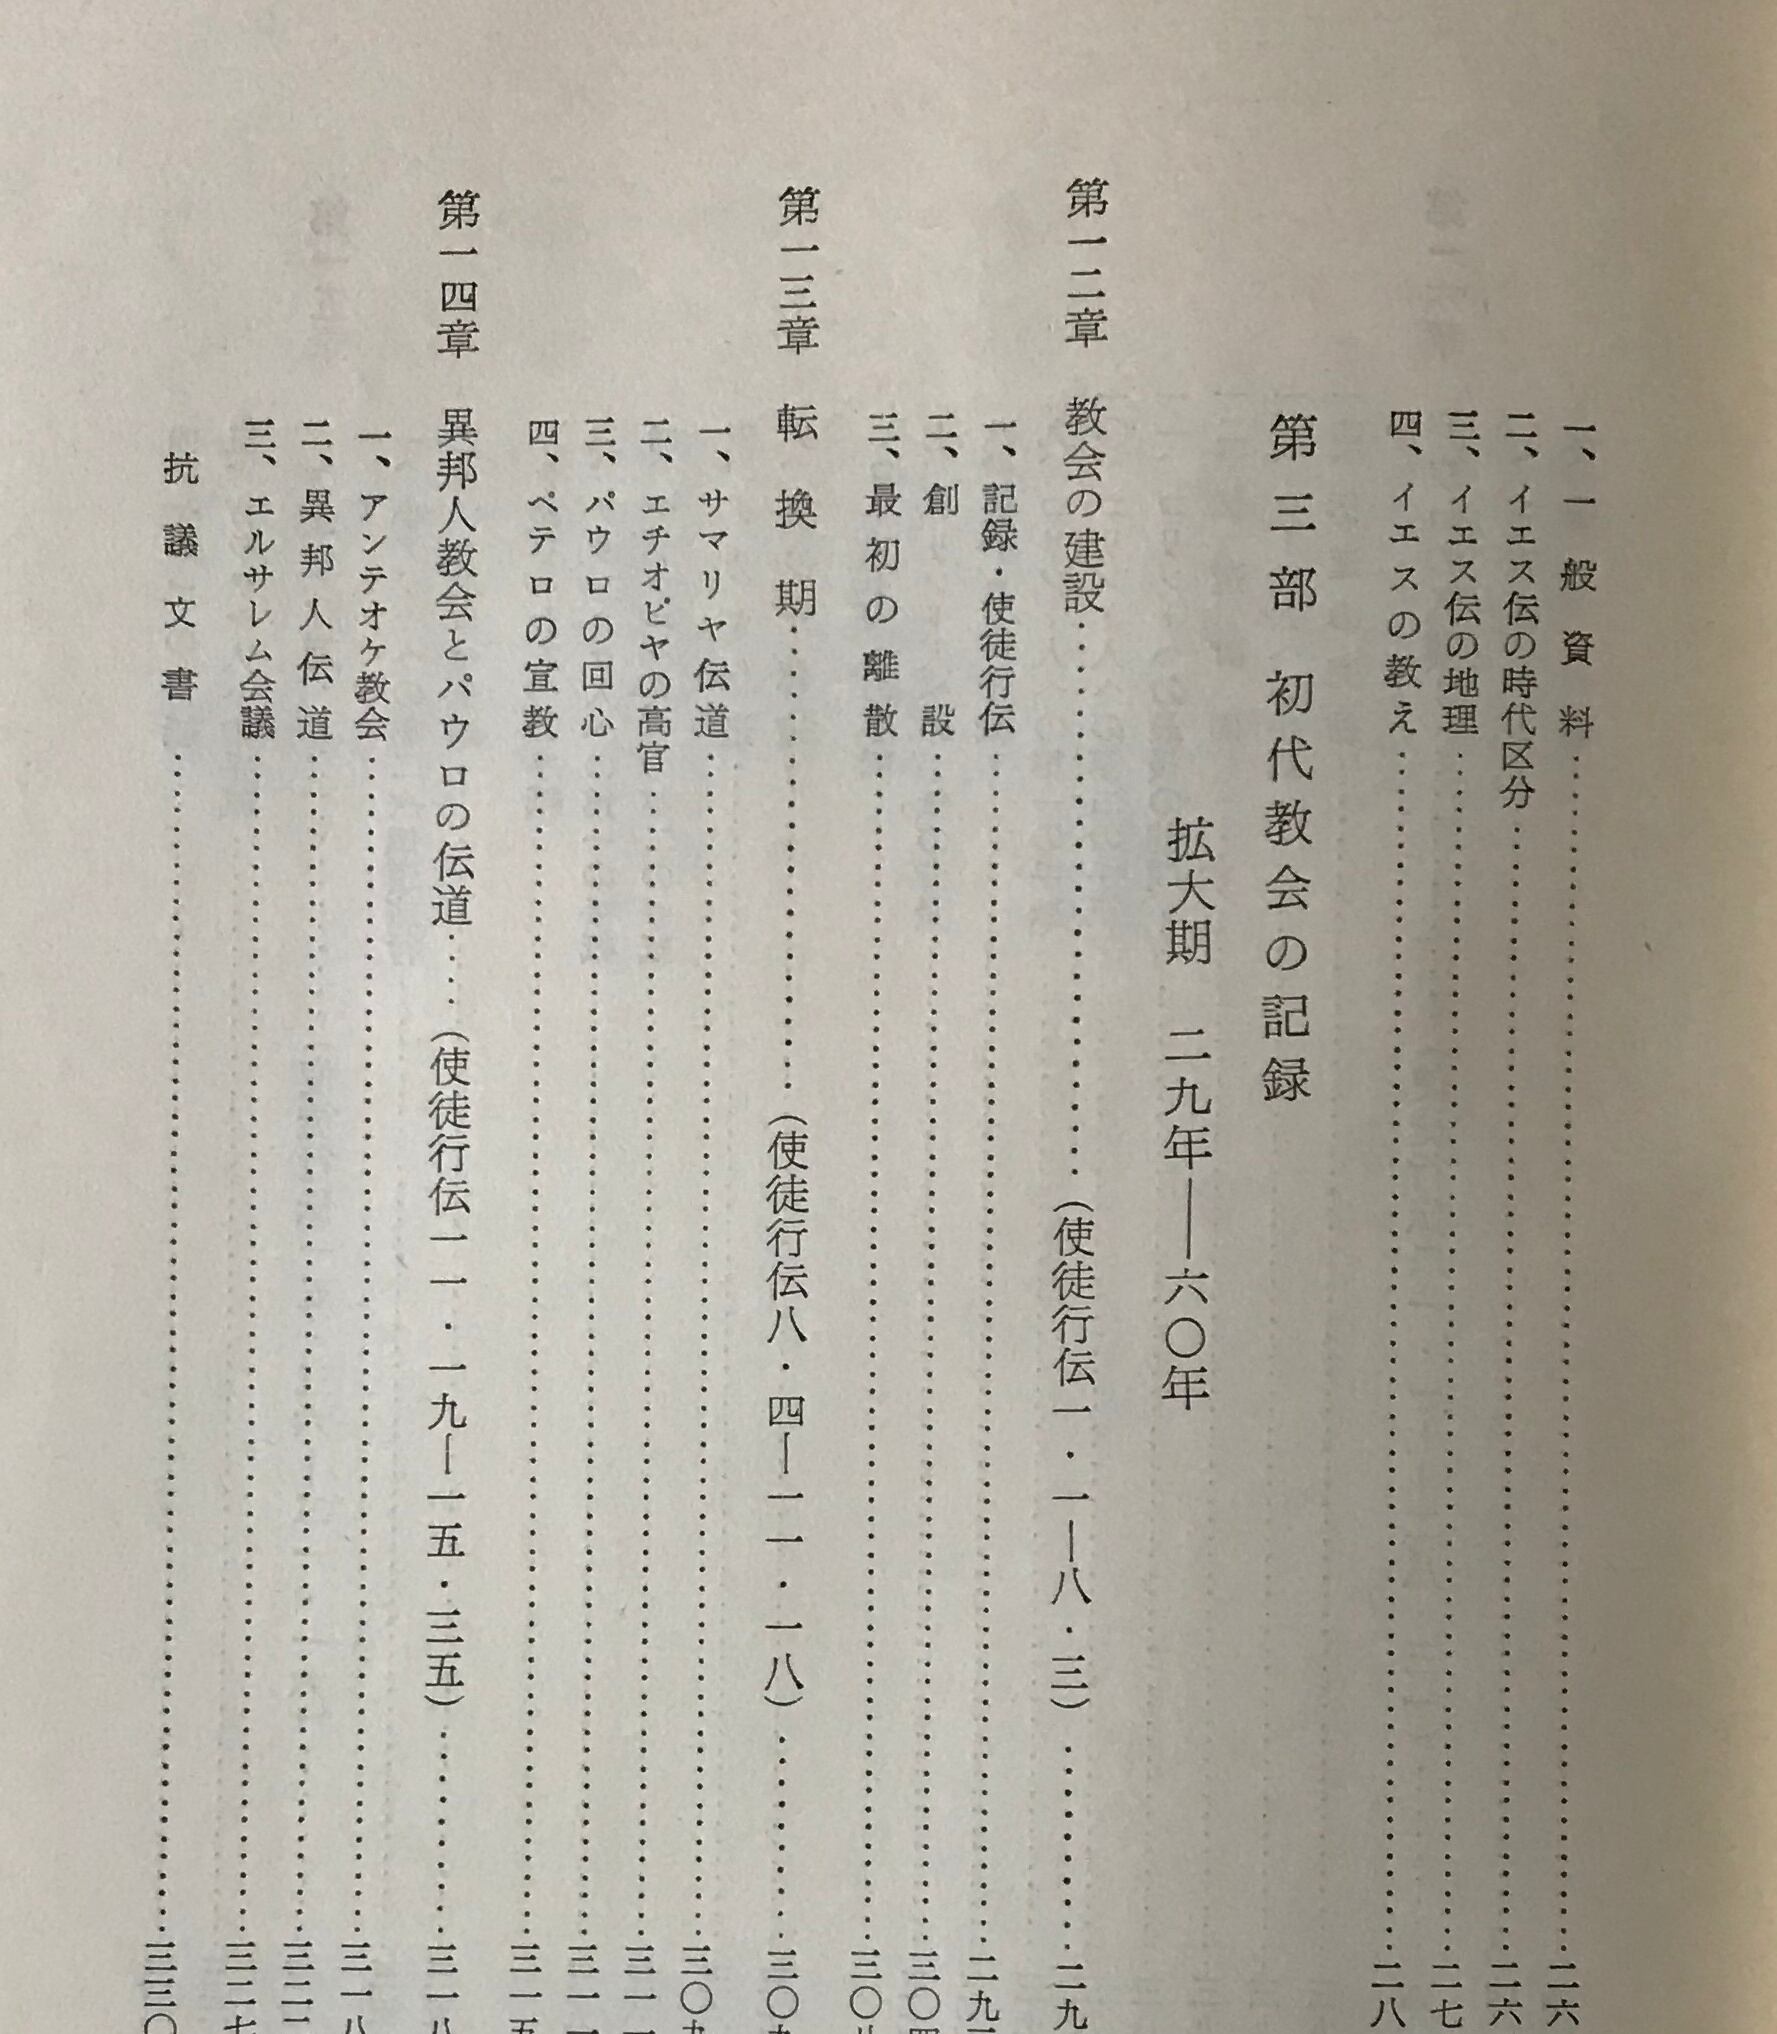 一、一般資料……二六
二、イエス伝の時代区分……二六
三、イエス伝の地理……二七
四、イエスの教え……二八
第三部 初代教会の記録
拡大期 二九年――六〇年
第一二章 教会の建設……(使徒行伝一・一―八・三)……二九
一、記録・使徒行伝……二九
二、創設……三〇四
三、最初の離散……三〇八
第一三章 転換期……(使徒行伝八・四―一一・一八)……三〇九
一、サマリヤ伝道……三〇九
二、エチオピヤの高官……三一
三、パウロの回心……三一
四、ペテロの宣教……三一五
第一四章 異邦人教会とパウロの伝道……(使徒行伝一一・一九―一五・三五)……三一八
一、アンテオケ教会……三一八
二、異邦人伝道……三二
三、エルサレム会議……三二七
抗議文書……三三〇